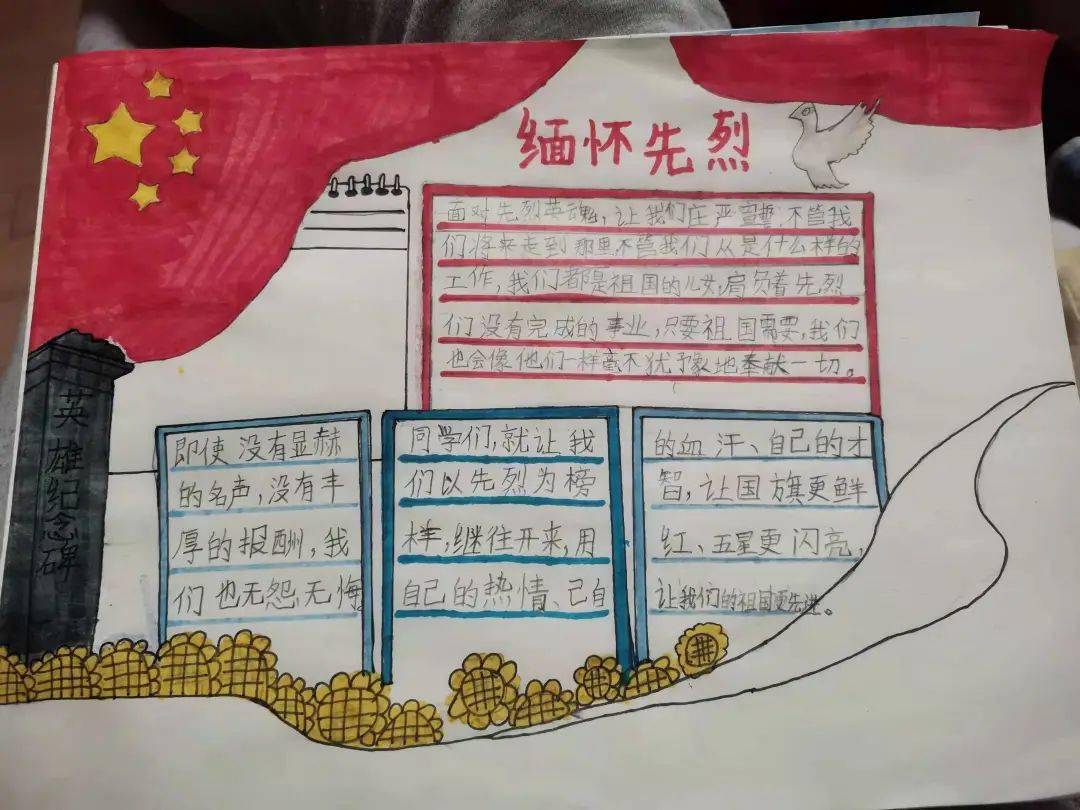 缅怀先烈
面对先烈英魂,让我们庄严宣誓,不管我
们将来走到那里不管我们从是什么样的
工作,我们都是祖国的儿女,肩负着先烈
们没有完成的事业,只要祖国需要,我们
也会像他们一样毫不犹予豫地奉献一切。
英雄纪念碑
即使没有显赫
的名声,没有丰
厚的报酬,我
们也无怨无悔。
同学们,就让我
们以先烈为榜
样,继往开来,用
自己的热情、己自
的血汗、自己的才
智,让国旗更鲜
红、五星更闪亮,
让我们的祖国更先进。